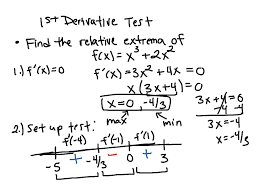 1st Derivative Test
• Find the relative extrema of
f(x) = x³ + 2x²
1.) f'(x)=0 f'(x) = 3x² + 4x = 0
x(3x+4) = 0
x=0, -4/3
max min
3x+4=0
-4 -4
3x=-4
x=-4/3
2.) Set up test:
f'(-4) f'(-1) f'(1)
+ − +
-5 -4/3 0 3